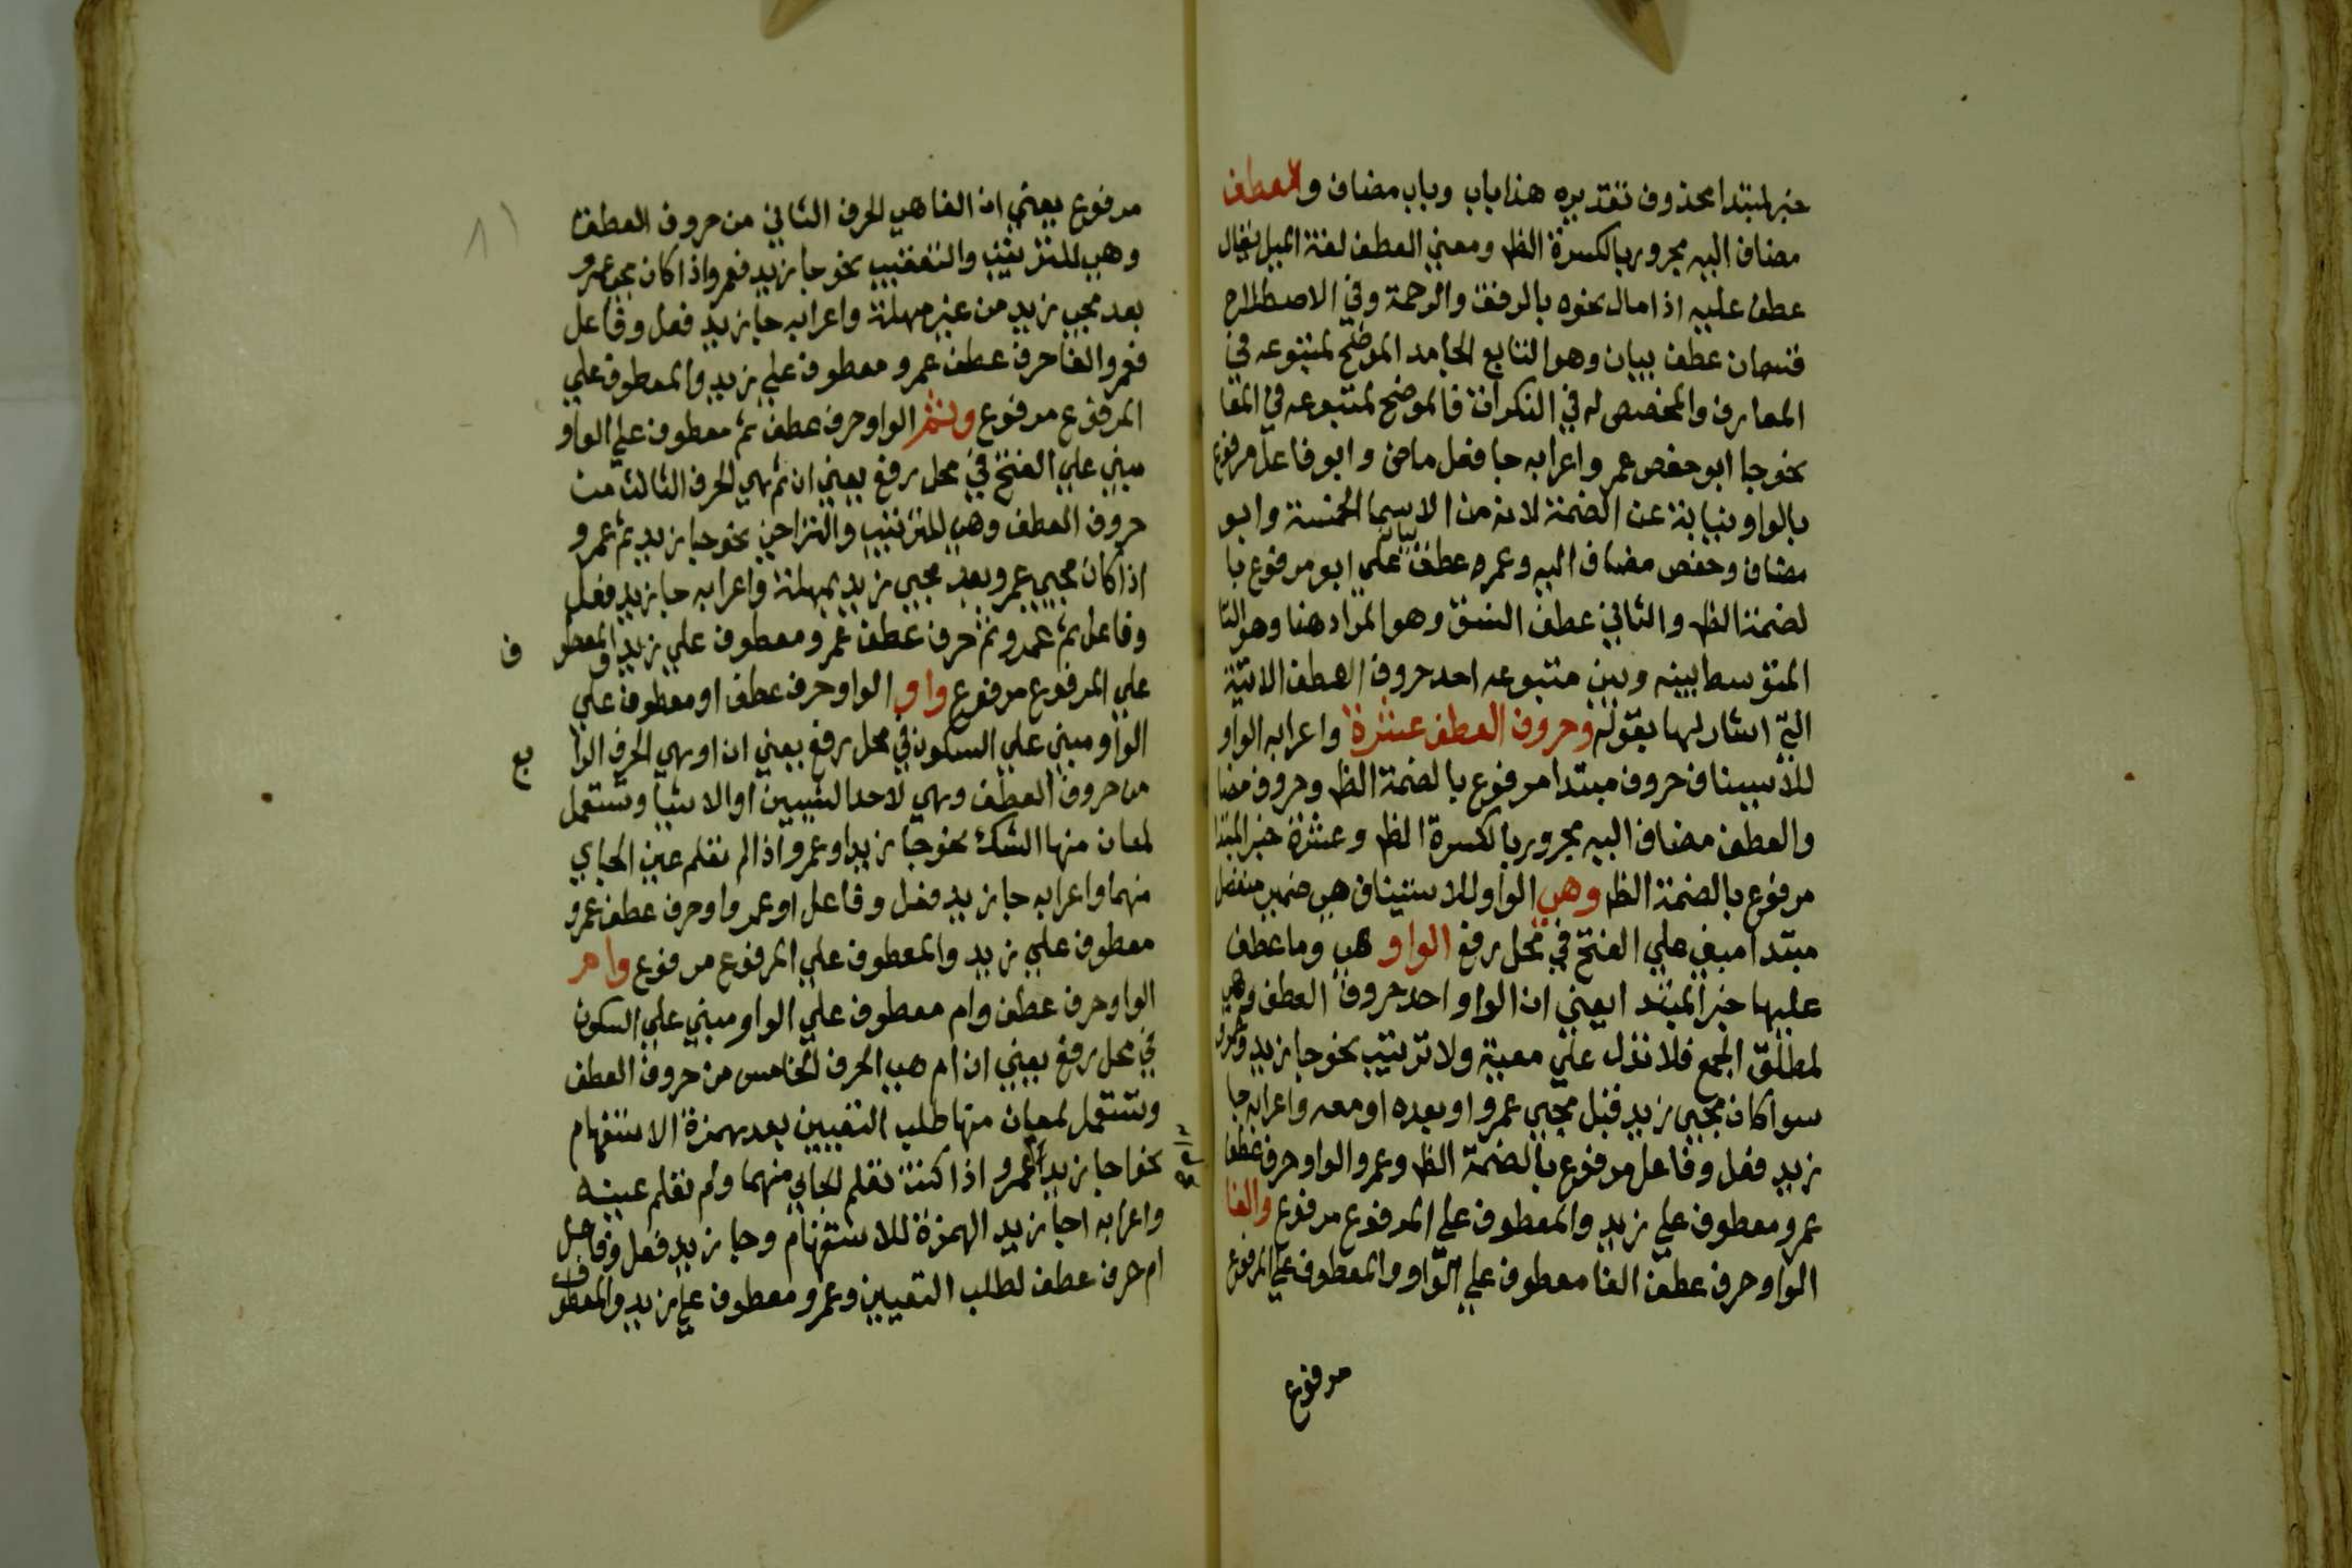 خبر لمبتدا محذوف تقديره هذا باب وباب مضاف والعطف
مضاف اليه مجرور بالكسرة الظ ومعني العطف لغة الميل يقال
عطف عليه اذا مال نحوه بالرفق والرحمة وفي الاصطلاح
قسمان عطف بيان وهو التابع الجامد الموضح لمتبوعه في
المعارف والمخصص له في النكرات فالموضح لمتبوعه في المعا
نحو جا ابو حفص عمر واعرابه جا فعل ماض وابو فاعل مرفوع
بالواو نيابة عن الضمة لانه من الاسما الخمسة وابو
مضاف وحفص مضاف اليه وعمر عطف بيان علي ابو مرفوع با
لضمة الظ والثاني عطف النسق وهو المراد هنا وهو التا
المتوسط بينه وبين متبوعه احد حروف العطف الاتية
التي اشار لها بقوله وحروف العطف عشرة واعرابه الواو
للاستيناف حروف مبتدا مرفوع بالضمة الظ وحروف مضا
والعطف مضاف اليه مجرور بالكسرة الظ وعشرة خبر المبتدا
مرفوع بالضمة الظ وهي الواو للاستيناف هي ضمير منفصل
مبتدا مبني علي الفتح في محل رفع الواو هي وما عطف
عليها خبر المبتدا يعني ان الواو احد حروف العطف وهي
لمطلق الجمع فلا تدل علي معية ولا ترتيب نحو جا زيد وعمرو
سوا كان مجي زيد قبل مجي عمرو او بعده او معه واعرابه جا
زيد فعل وفاعل مرفوع بالضمة الظ وعمرو الواو حرف عطف
عمرو معطوف علي زيد والمعطوف علي المرفوع مرفوع والفا
الواو حرف عطف الفا معطوف علي الواو والمعطوف علي المرفوع
مرفوع
مرفوع يعني ان الفا هي الحرف الثاني من حروف العطف
وهي للترتيب والتعقيب نحو جا زيد فعمرو اذا كان مجي عمرو
بعد مجي زيد من غير مهلة واعرابه جا زيد فعل وفاعل
فعمرو الفا حرف عطف عمرو معطوف علي زيد والمعطوف علي
المرفوع مرفوع وثم الواو حرف عطف ثم معطوف علي الواو
مبني علي الفتح في محل رفع يعني ان ثم هي الحرف الثالث من
حروف العطف وهي للترتيب والتراخي نحو جا زيد ثم عمرو
اذا كان مجي عمرو بعد مجي زيد بمهلة واعرابه جا زيد فعل
وفاعل ثم عمرو ثم حرف عطف عمرو معطوف علي زيد والمعطو ف
علي المرفوع مرفوع واو الواو حرف عطف او معطوف علي
الواو مبني علي السكون في محل رفع يعني ان او هي الحرف الرا بع
من حروف العطف وهي لاحد الشيين او الاشيا وتستعمل
لمعان منها الشك نحو جا زيد او عمرو اذا لم تعلم عين الجاي
منهما واعرابه جا زيد فعل وفاعل او عمرو او حرف عطف عمرو
معطوف علي زيد والمعطوف علي المرفوع مرفوع وام
الواو حرف عطف وام معطوف علي الواو مبني علي السكون
في محل رفع يعني ان ام هي الحرف الخامس من حروف العطف
وتستعمل لمعان منها طلب التعيين بعد همزة الاستفهام
نحو اجا زيد ام عمرو اذا كنت تعلم الجاي منهما ولم تعلم عينه
واعرابه اجا زيد الهمزة للاستفهام وجا زيد فعل وفاعل
ام حرف عطف لطلب التعيين وعمرو معطوف علي زيد والمعطوف